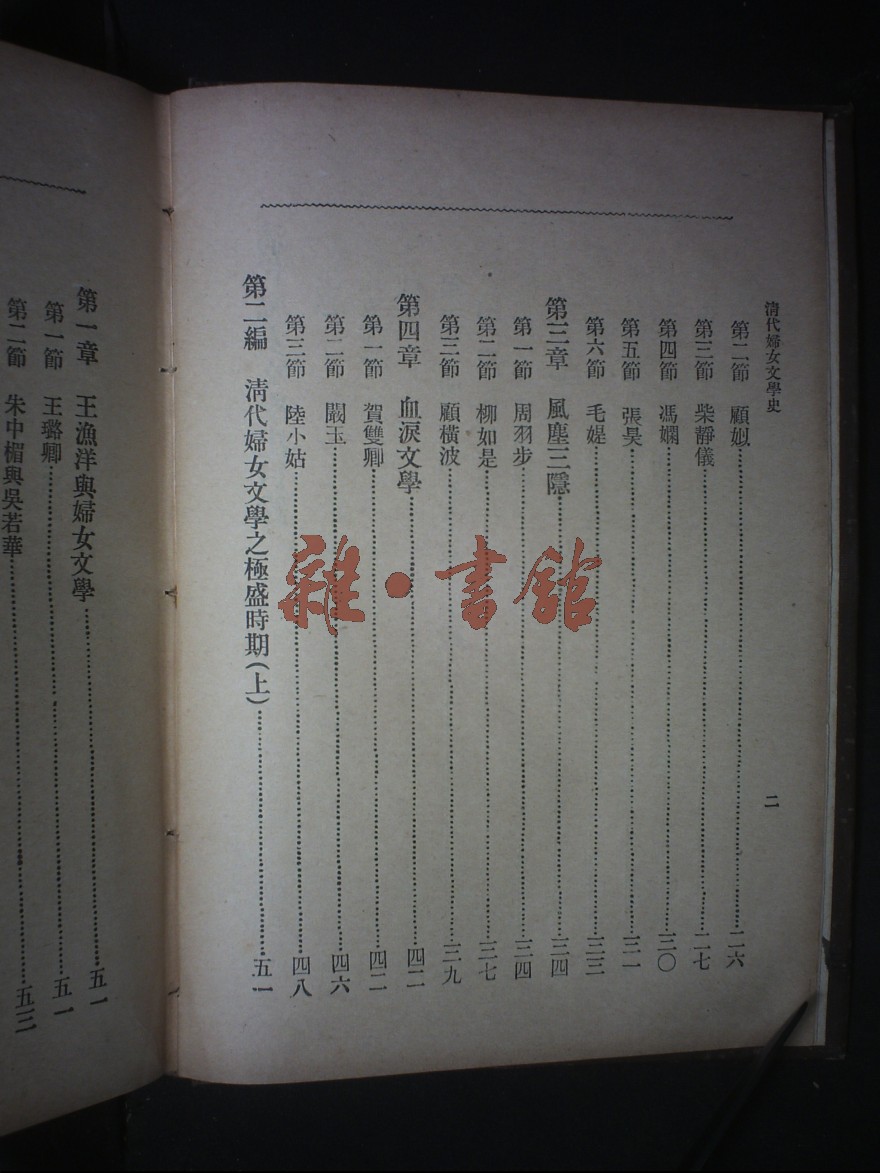 清代婦女文學史
二
第二節 顧姒 二六
第三節 柴靜儀 二七
第四節 馮嫻 三〇
第五節 張昊 三一
第六節 毛媞 三三
第三章 風塵三隱 三四
第一節 周羽步 三四
第二節 柳如是 三七
第三節 顧橫波 三九
第四章 血淚文學 四二
第一節 賀雙卿 四二
第二節 闞玉 四六
第三節 陸小姑 四八
第二編 清代婦女文學之極盛時期(上) 五一
第一章 王漁洋與婦女文學 五一
第一節 王璐卿 五一
第二節 朱中楣與吳若華 五三
雜·書館